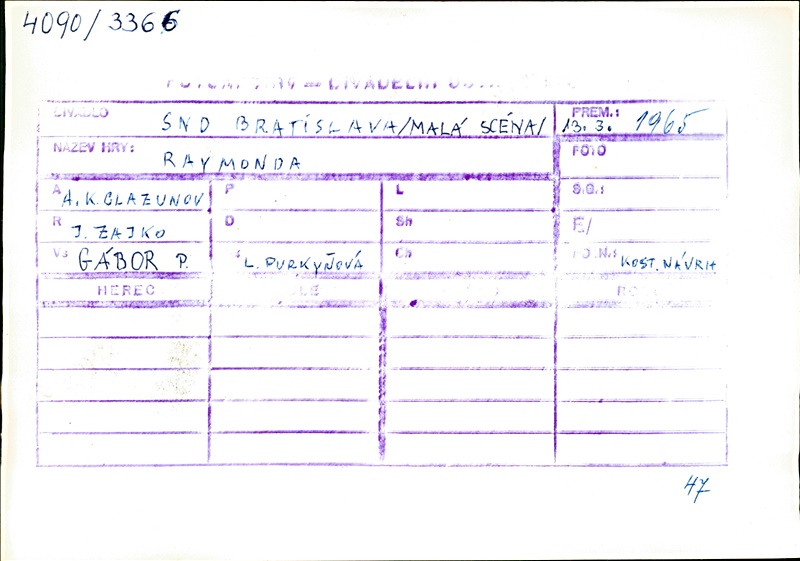 4090/3366
DIVADLO SND BRATISLAVA/MALÁ SCÉNA/ PREM.: 13. 3. 1965
NÁZEV HRY: RAYMONDA FOTO
A A. K. GLAZUNOV P L S.G.:
R J. ZAJKO D Sh E/
Vs GÁBOR P. L. PURKYŇOVÁ Ch KOST. NÁVRH
HEREC
47